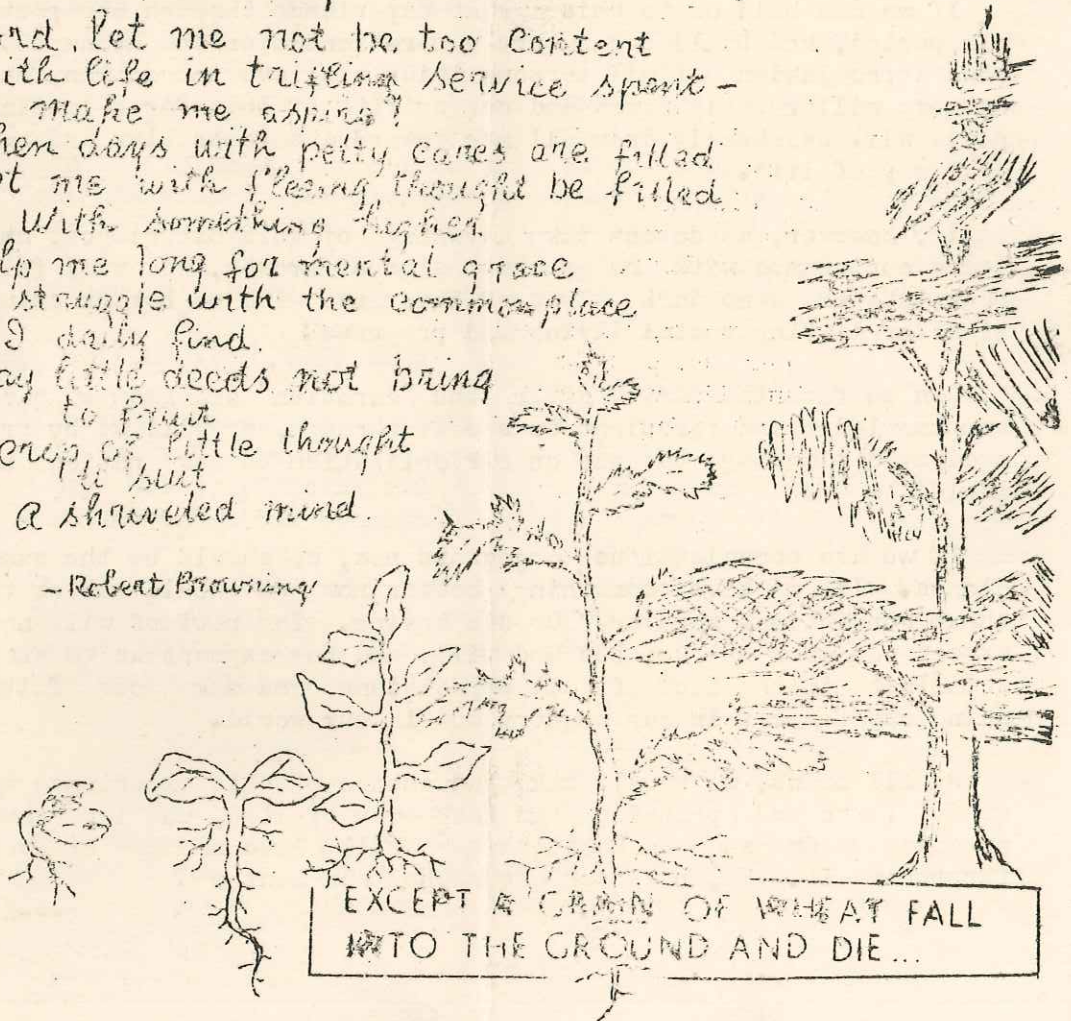 rd, let me not be too content
ith life in trifling service spent -
make me aspire!
hen days with petty cares are filled
et me with fleeing thought be filled
With something higher
lp me long for mental grace
struggle with the commonplace
I daily find.
ay little deeds not bring
to fruit
crop of little thought
to suit
A shriveled mind.
-Robert Browning
EXCEPT A GRAIN OF WHEAT FALL
INTO THE GROUND AND DIE...